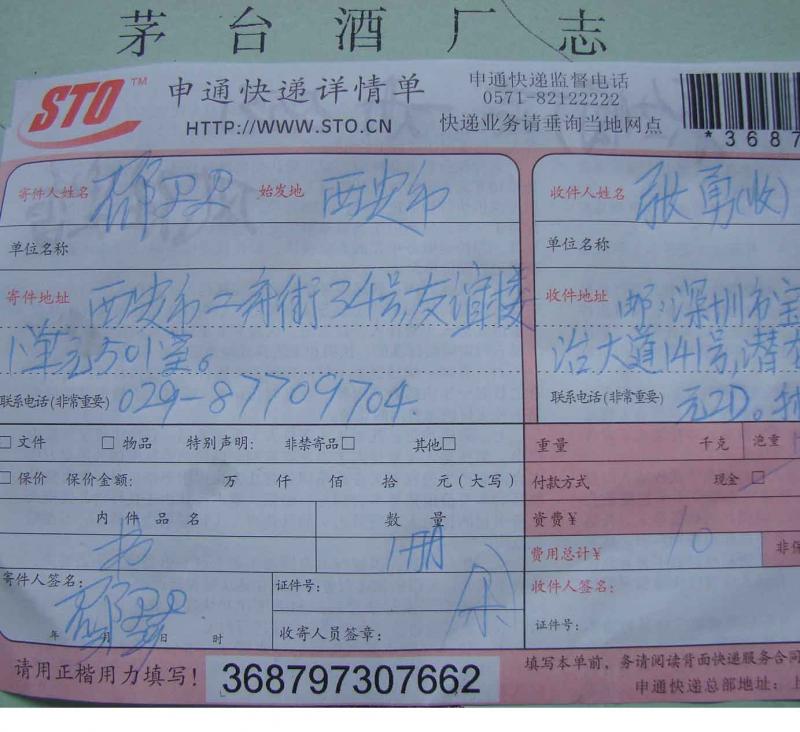 茅台酒厂志
STO™ 申通快递详情单
HTTP://WWW.STO.CN
申通快递监督电话
0571-82122222
快递业务请垂询当地网点
*3687
寄件人姓名 始发地 西安市
收件人姓名 张勇(收)
单位名称
单位名称
寄件地址 西安市二府街34号友谊楼
1单元501室。
收件地址 邮:深圳市宝
治大道141号,潜
联系电话(非常重要) 029-87709704.
联系电话(非常重要) 元2D。
□文件 □物品 特别声明: 非禁寄品□ 其他□
重量 千克 泡重
□保价 保价金额: 万 仟 佰 拾 元(大写)
付款方式 现金□
内件品名 数量
资费¥
书 1册
费用总计¥ 10 非保
寄件人签名:
年 月 日 时
证件号:
收寄人员签章:
收件人签名:
证件号:
请用正楷用力填写! 368797307662
填写本单前,务请阅读背面快递服务合同
申通快递总部地址:上